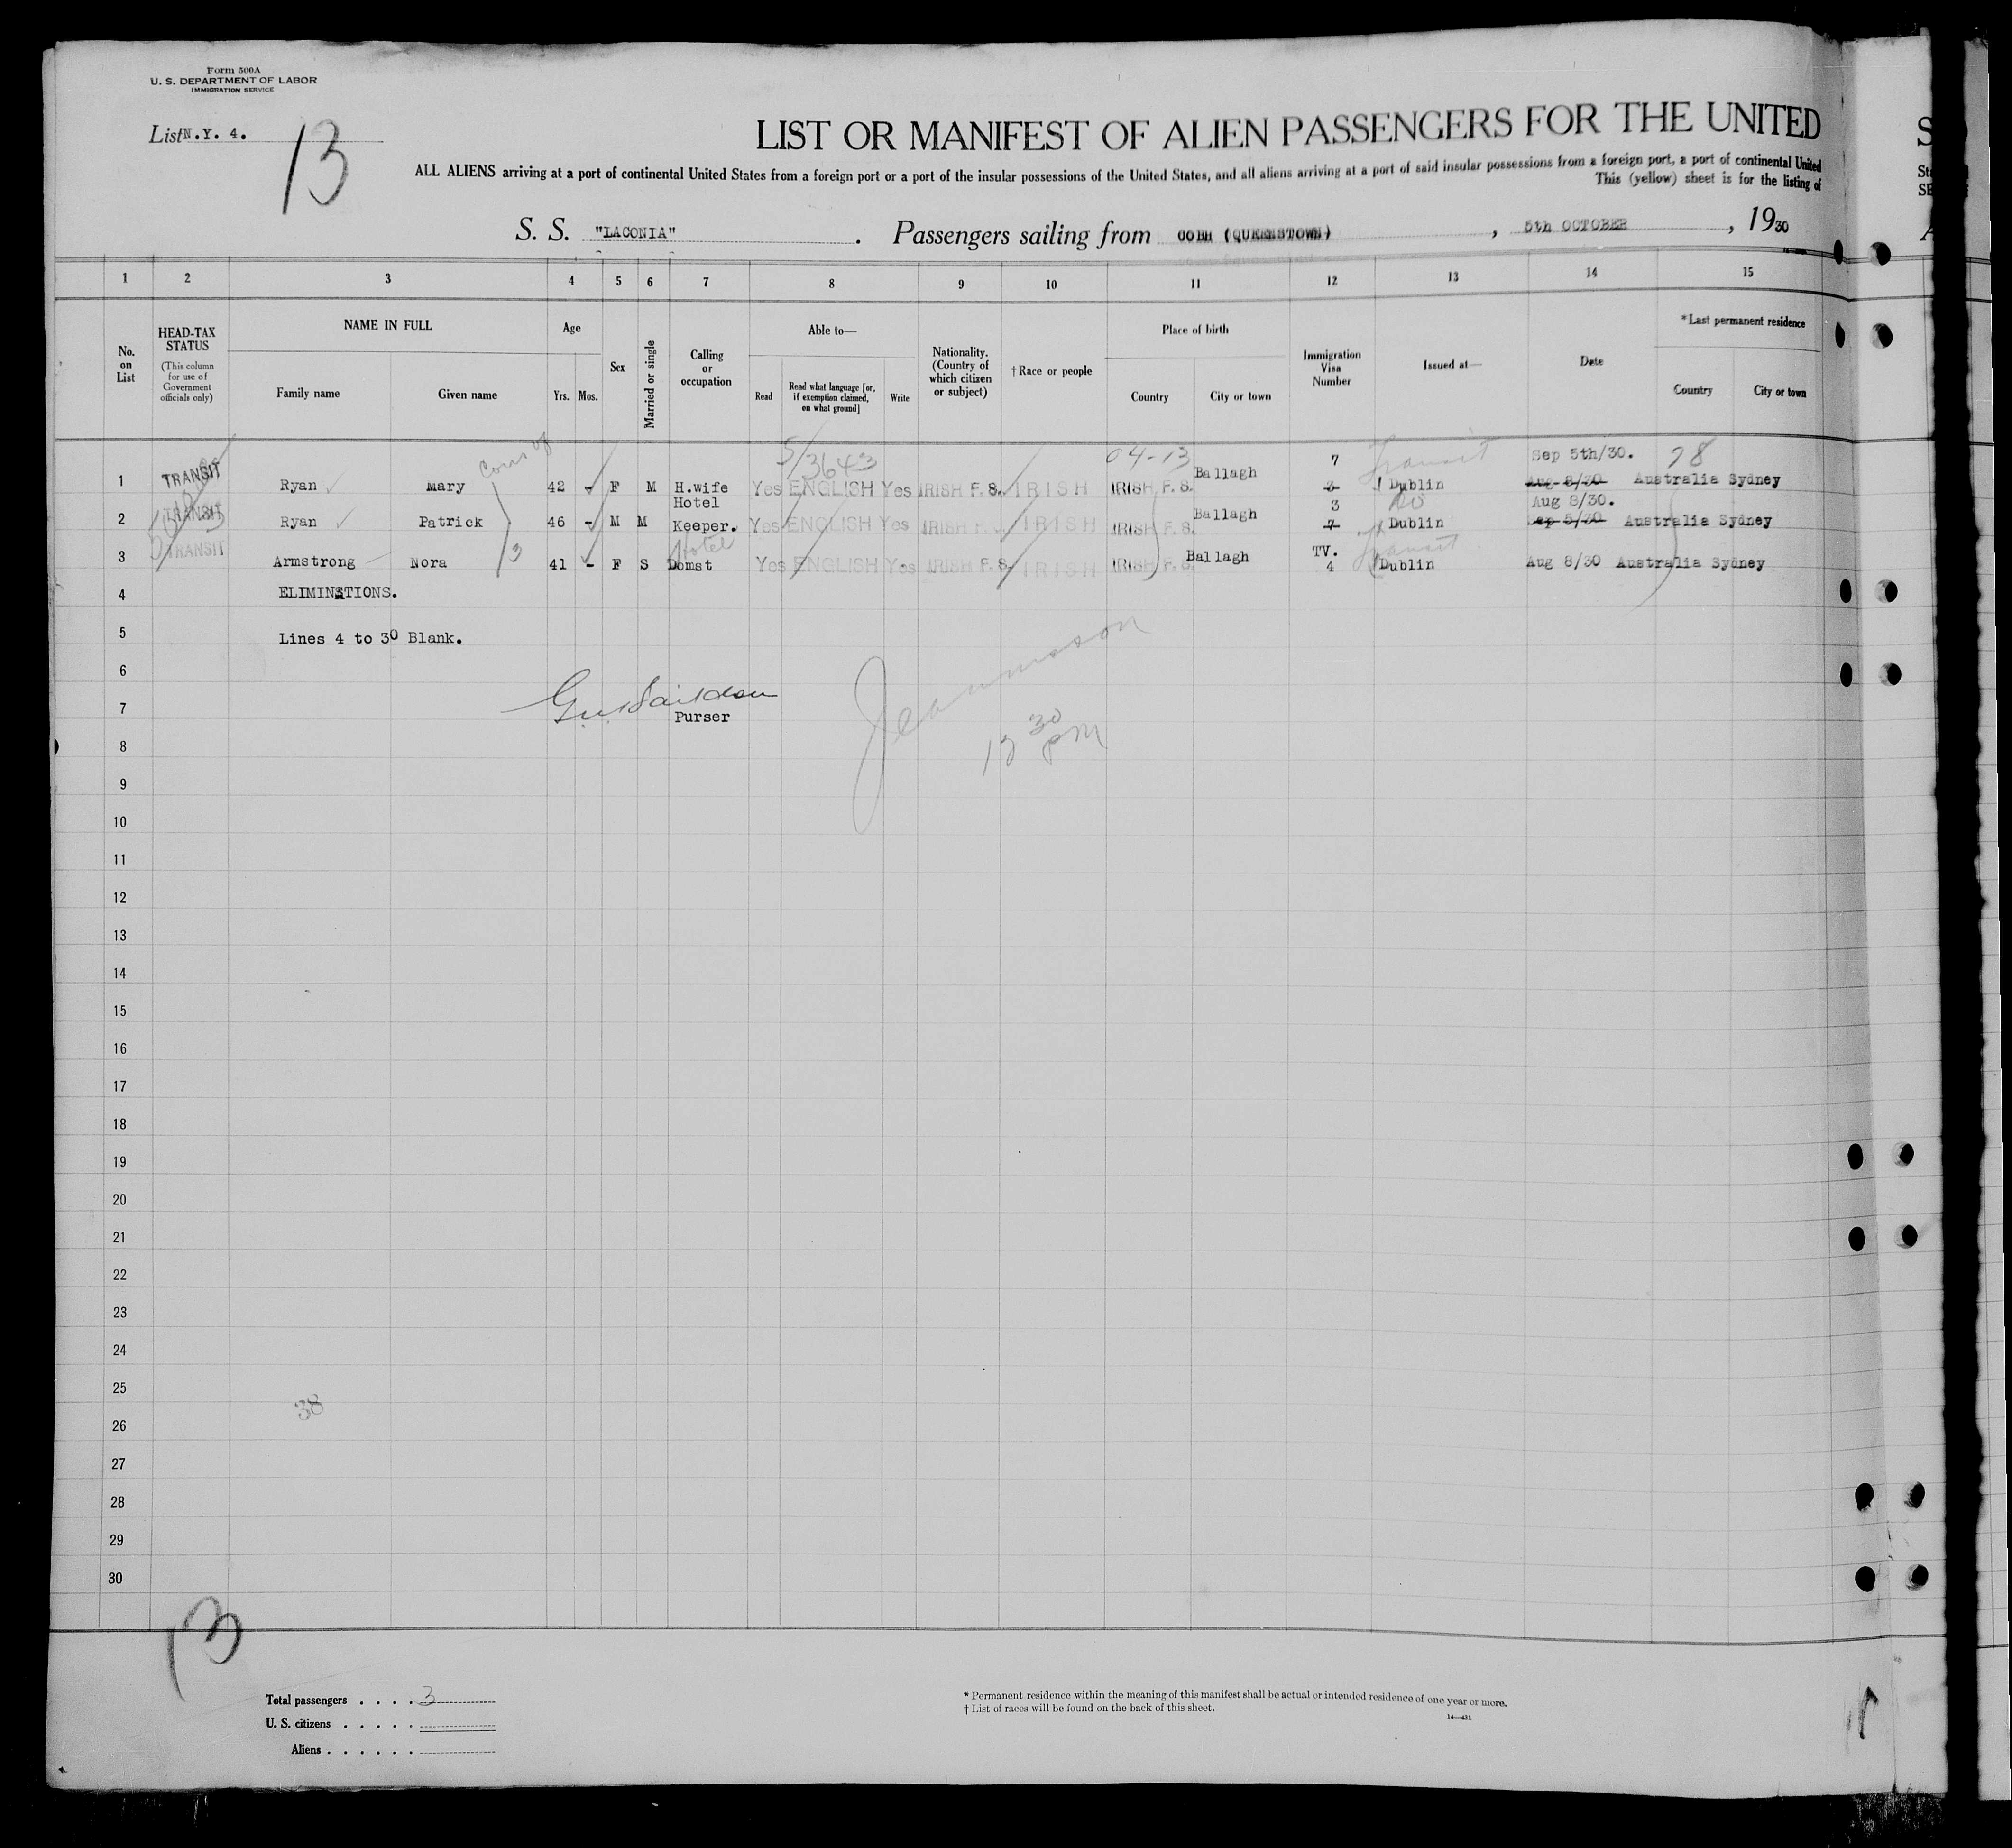 Form 500A
U. S. DEPARTMENT OF LABOR
IMMIGRATION SERVICE
List N.Y. 4.
13
LIST OR MANIFEST OF ALIEN PASSENGERS FOR THE UNITED
ALL ALIENS arriving at a port of continental United States from a foreign port or a port of the insular possessions of the United States, and all aliens arriving at a port of said insular possessions from a foreign port, a port of continental United
This (yellow) sheet is for the listing of
S. S. "LACONIA" . Passengers sailing from COBH (QUEENSTOWN) , 5th OCTOBER , 1930
1 2 3 4 5 6 7 8 9 10 11 12 13 14 15
No. on List
HEAD-TAX STATUS
(This column for use of Government officials only)
NAME IN FULL
Family name Given name
Age
Yrs. Mos.
Sex
Married or single
Calling or occupation
Able to—
Read
Read what language [or, if exemption claimed, on what ground]
Write
Nationality. (Country of which citizen or subject)
† Race or people
Place of birth
Country City or town
Immigration Visa Number
Issued at—
Date
* Last permanent residence
Country City or town
5/3643 04-13 7 Transit Sep 5th/30. 78
1 TRANSIT Ryan Mary 42 - F M H.wife Yes ENGLISH Yes IRISH F.S. IRISH IRISH F.S. Ballagh 3 Dublin Aug 8/30 Australia Sydney
Hotel 3 Do Aug 8/30.
2 TRANSIT Ryan Patrick 46 - M M Keeper. Yes ENGLISH Yes IRISH F. IRISH IRISH F.S. Ballagh 7 Dublin Sep 5/30 Australia Sydney
Hotel TV. Transit
3 TRANSIT Armstrong Nora 41 - F S Domst Yes ENGLISH Yes IRISH F.S. IRISH IRISH F.S. Ballagh 4 Dublin Aug 8/30 Australia Sydney
3
4 ELIMINSTIONS.
5 Lines 4 to 30 Blank.
6
7 Purser
8
30
pm
9
10
11
12
13
14
15
16
17
18
19
20
21
22
23
24
25
38
26
27
28
29
30
13
Total passengers . . . . 3
U. S. citizens . . . . .
Aliens . . . . . .
* Permanent residence within the meaning of this manifest shall be actual or intended residence of one year or more.
† List of races will be found on the back of this sheet.
14—431